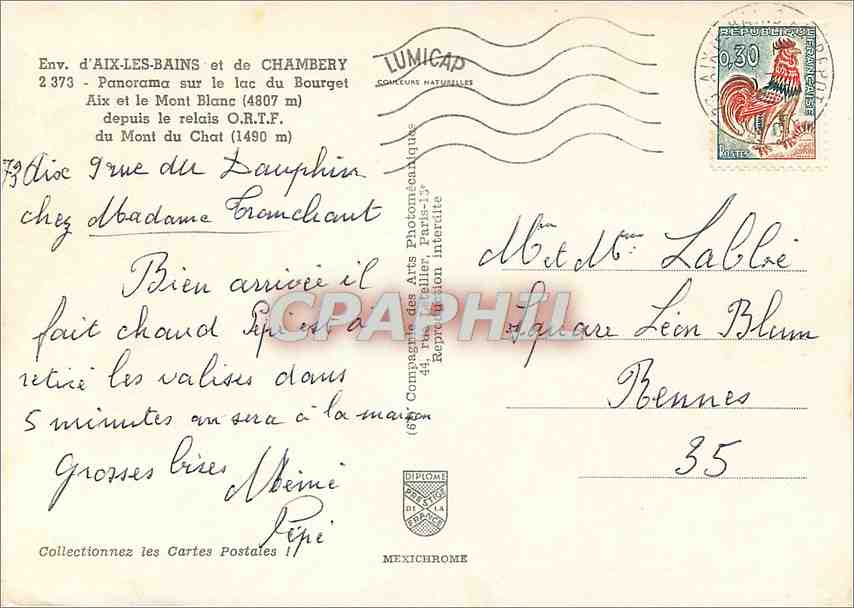 Env. d'AIX-LES-BAINS et de CHAMBERY
2 373 - Panorama sur le lac du Bourget
Aix et le Mont Blanc (4807 m)
depuis le relais O.R.T.F.
du Mont du Chat (1490 m)
73 Aix 9 rue du Dauphin
chez Madame Tranchant
Bien arrivée il
fait chaud Pépé est a
retiré les valises dans
5 minutes on sera à la maison
Grosses bises Mémé
Pépé
Collectionnez les Cartes Postales !
LUMICAP
COULEURS NATURELLES
Compagnie des Arts Photomécaniques
44, rue Letellier, Paris-15e
Reproduction interdite
CPAPHIL
DIPLOME
PRESTIGE
DE LA
FRANCE
MEXICHROME
REPUBLIQUE
FRANÇAISE
0,30
POSTES
Mr et Mme Labbé
Square Léon Blum
Rennes
35